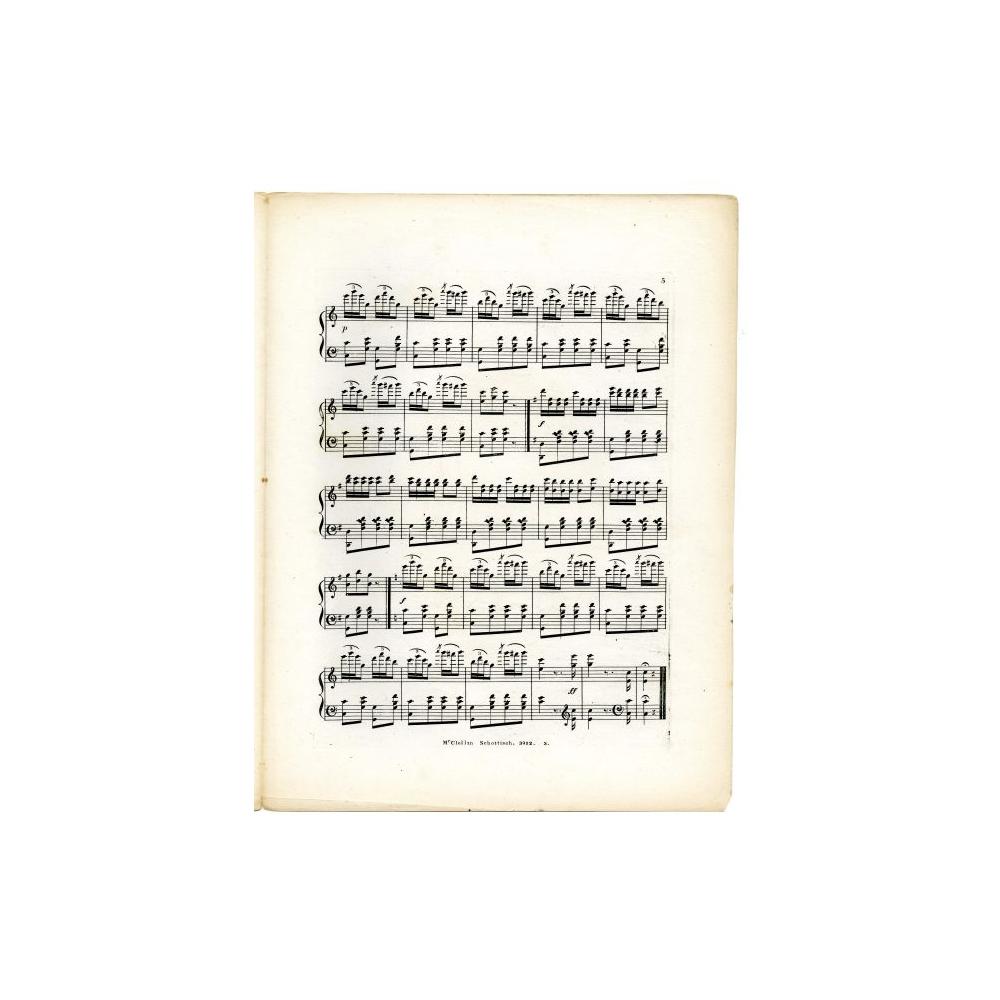 5
p
f
f
ff
McClellan Schottisch. 3912. 3.